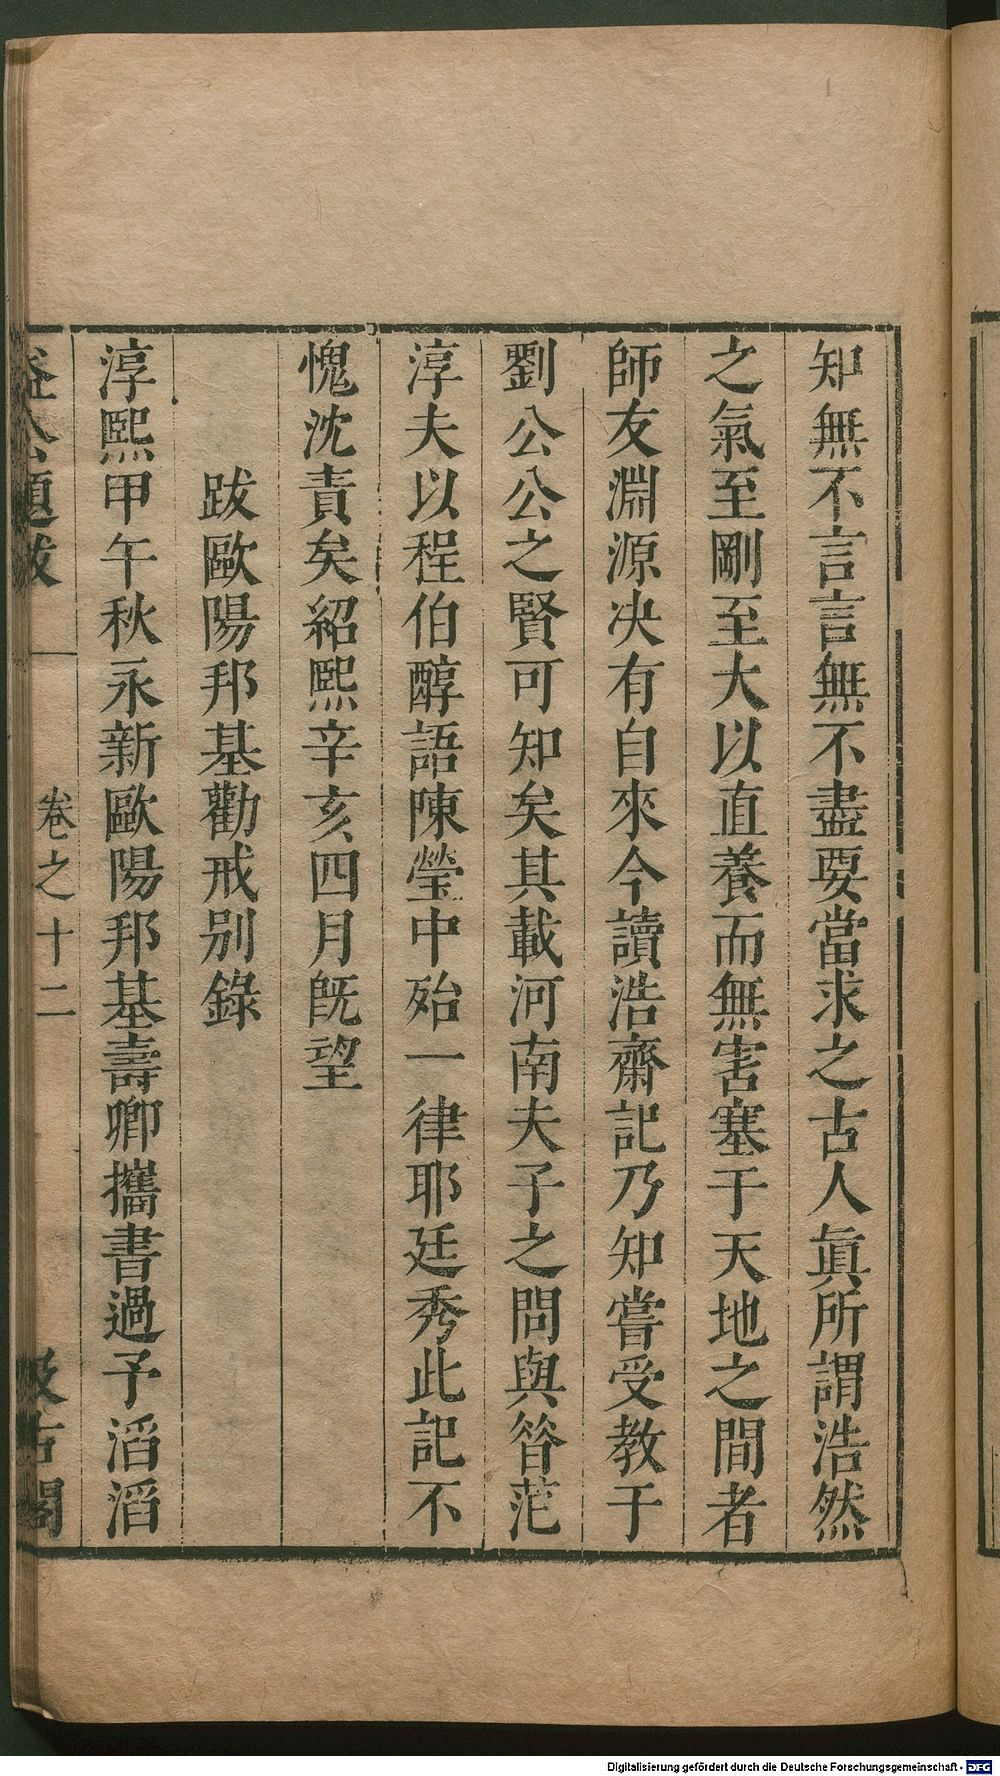 知無不言言無不盡要當求之古人眞所謂浩然
之氣至剛至大以直養而無害塞于天地之間者
師友淵源决有自來今讀浩齋記乃知嘗受教于
劉公公之賢可知矣其載河南夫子之問與昝范
淳夫以程伯醇語陳瑩中殆一律耶廷秀此記不
愧沈責矣紹熙辛亥四月旣望
跋歐陽邦基勸戒别錄
淳熙甲午秋永新歐陽邦基壽卿攜書過予滔滔
益公題跋 卷之十二 汲古閣
Digitalisierung gefördert durch die Deutsche Forschungsgemeinschaft - DFG